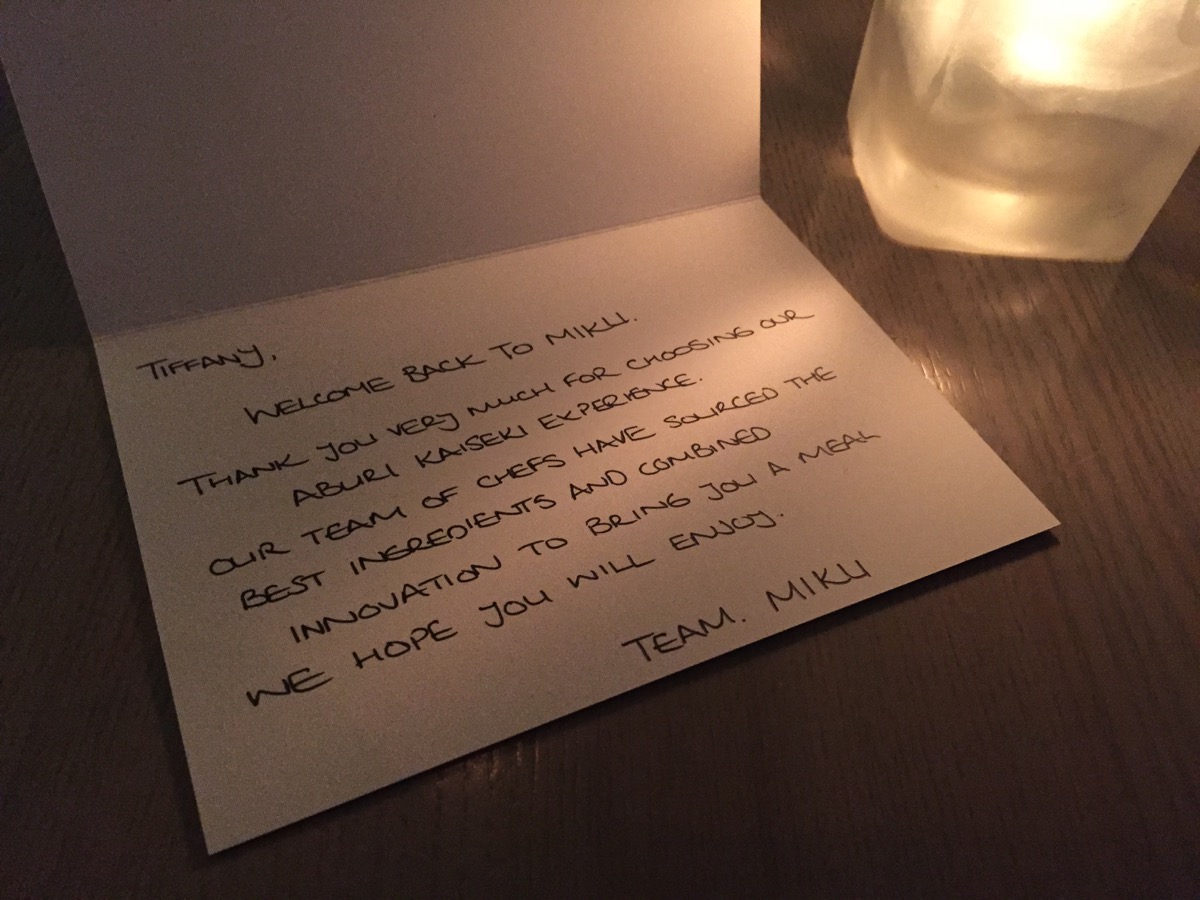 TIFFANY,
WELCOME BACK TO MIKU.
THANK YOU VERY MUCH FOR CHOOSING OUR
ABURI KAISEKI EXPERIENCE.
OUR TEAM OF CHEFS HAVE SOURCED THE
BEST INGREDIENTS AND COMBINED
INNOVATION TO BRING YOU A MEAL
WE HOPE YOU WILL ENJOY.
TEAM. MIKU